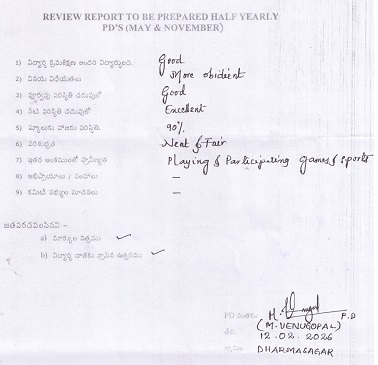 REVIEW REPORT TO BE PREPARED HALF YEARLY
PD'S (MAY & NOVEMBER)
1) విద్యార్థి క్రమశిక్షణ Good
2) వినయ విధేయతలు More obidient
3) పరిస్థితి చదువులో Good
4) నేటి పరిస్థితి చదువులో Excellent
5) హాజరు పరిస్థితి. 90%
6) పరిశుభ్రత Neat & Fair
7) ఇతర అంశములలో ప్రావీణ్యత Playing & Participating games & sports
8) అభిప్రాయాలు / సలహాలు –
9) కమిటీ సభ్యుల సూచనలు –
జతపరచవలసినవి –
a) మార్కుల పత్రము ✓
b) విద్యార్థి వ్రాసిన ఉత్తరము ✓
PD సంతకం P.D
(M. VENUGOPAL)
తేది 12.02.2026
స్థలం DHARMASAGAR